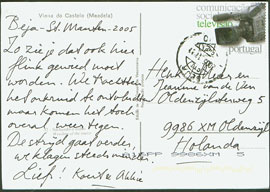 Viana do Castelo (Meadela)
Beja - St. Maarten - 2005
Zo zie je dat ook hier
flink gewerkt moet
worden. We trachten
het onkruid te ontvluchten
maar komen het toch
overal weer tegen.
De strijd gaat verder,
we klagen steeds minder
Lief! Koert &
comunicação
social
televisão
portugal
Henk
Jeanne van der Veen
Oldenzijlsterweg 5
9986 XM Oldenzijl
Holanda
9986XM 5